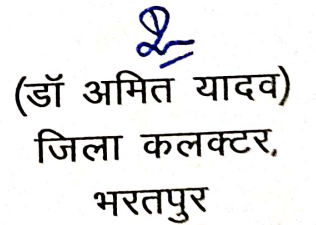 (डॉ अमित यादव)
जिला कलक्टर,
भरतपुर